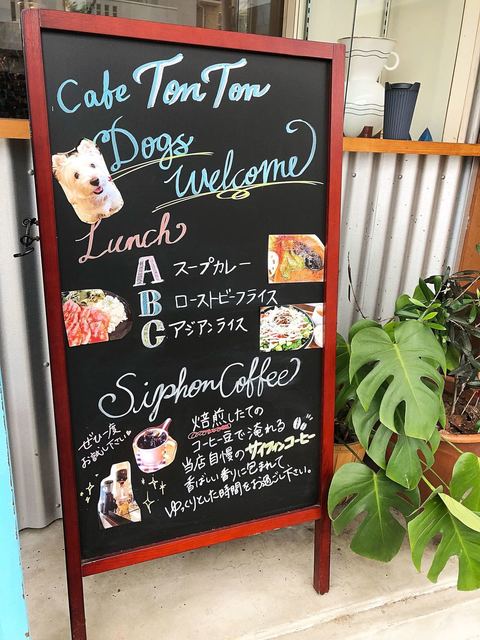 Cafe Ton Ton
Dogs
Welcome
Lunch
A スープカレー
B ローストビーフライス
C アジアンライス
Siphon Coffee
ぜひ一度
お試し下さい。
焙煎したての
コーヒー豆で淹れる
当店自慢のサイフォンコーヒー
香ばしい香りに包まれて
ゆっくりとした時間をお過ごし下さい。